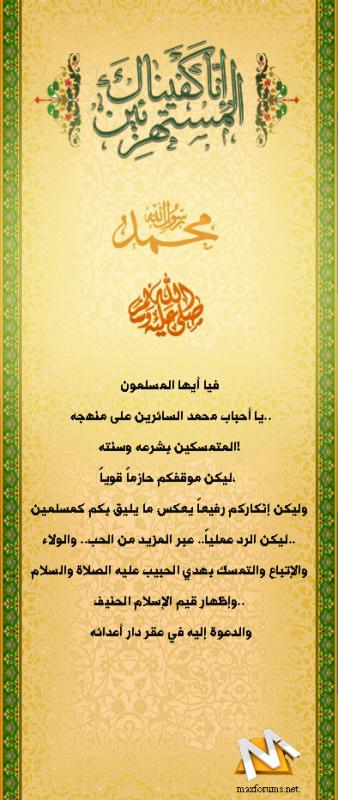 إنا كفيناك
المستهزئين
محمد رسول الله
صلى الله عليه وسلم
فيا أيها المسلمون
يا أحباب محمد السائرين على منهجه..
المتمسكين بشرعه وسنته!
ليكن موقفكم حازماً قوياً،
وليكن إنكاركم رفيعاً يعكس ما يليق بكم كمسلمين
ليكن الرد عملياً.. عبر المزيد من الحب.. والولاء..
والإتباع والتمسك بهدي الحبيب عليه الصلاة والسلام
وإظهار قيم الإسلام الحنيف..
والدعوة إليه في عقر دار أعدائه
M
maxforums.net